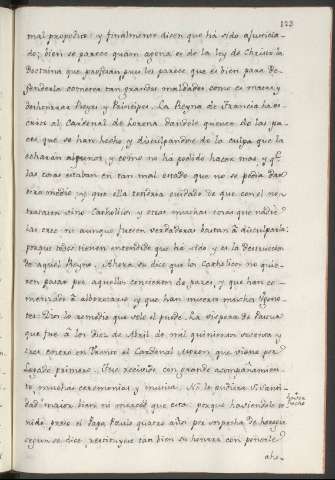 123
mal proposito: y finalmente dicen que há sido ajusticia-
do; bien se parece quan agena es de la ley de Christo la
Doctrina que profesan pues les parece que es bien para De-
fenderla cometer tan grandes maldades como es matar y
deshonrrar Reyes y Principes. La Reyna de Francia ha es-
crito al Cardenal de Lorena dandole quenta de las pa-
ces que se han hecho, y disculpandose de la culpa que le
echaran algunos, y como no ha podido hacer mas, y q.
las cosas estaban en tan mal estado que no se podia dar
otro medio, y que ella tendria cuidado de que con el no
tratasen sino Catholicos y otras muchas cosas que nadie
las cree ni aunque fuesen verdaderas bastan á disculparla:
porque todos tienen entendido que ha sido, y es la destruccion
de aquel Reyno. Ahora se dice que los Catholicos no quie-
ren pasar por aquellos conciertos de paces, y que han co-
menzado á alborotarse, y que han muerto muchos Ugono-
tes: Dios lo remedie que solo el puede. La vispera de Pascua
que fue á los diez de Abril de mil quinientos sesenta y
tres entró en Trento el Cardenal Moron que viene por
Legado primero. Fue recivido con grande acompañamien-
to, muchas ceremonias y musica. Ni le pudiera Su Santi-
dad maior bien ni merced que esta: porque haviendole te-
nido preso el Papa Paulo quarto años por sospecha de herege
segun se dice, restituyese tan bien su honrra con ponerle
aho-